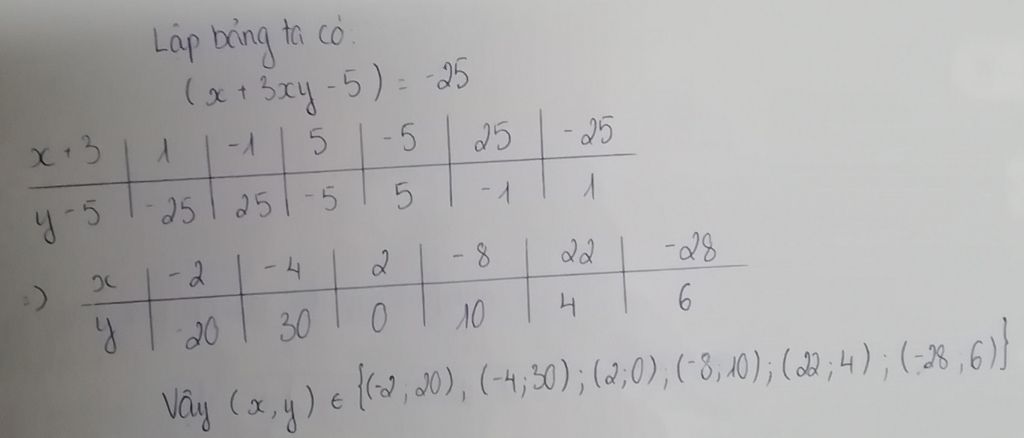 Lập bảng ta có:
(x + 3xy - 5) = -25
x + 3 | 1 | -1 | 5 | -5 | 25 | -25
y - 5 | -25 | 25 | -5 | 5 | -1 | 1
=) x | -2 | -4 | 2 | -8 | 22 | -28
y | -20 | 30 | 0 | 10 | 4 | 6
Vậy (x, y) ∈ {(-2; 20), (-4; 30); (2; 0); (-8; 10); (22; 4); (-28; 6)}